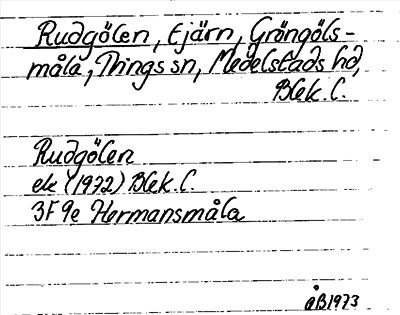 Rudgölen, tjärn, Gröngöls-
måla, Tings sn, Medelstads hd,
Blek. l.
Rudgölen
ek (1972) Blek. l.
3F 9e Hermansmåla
åB1973